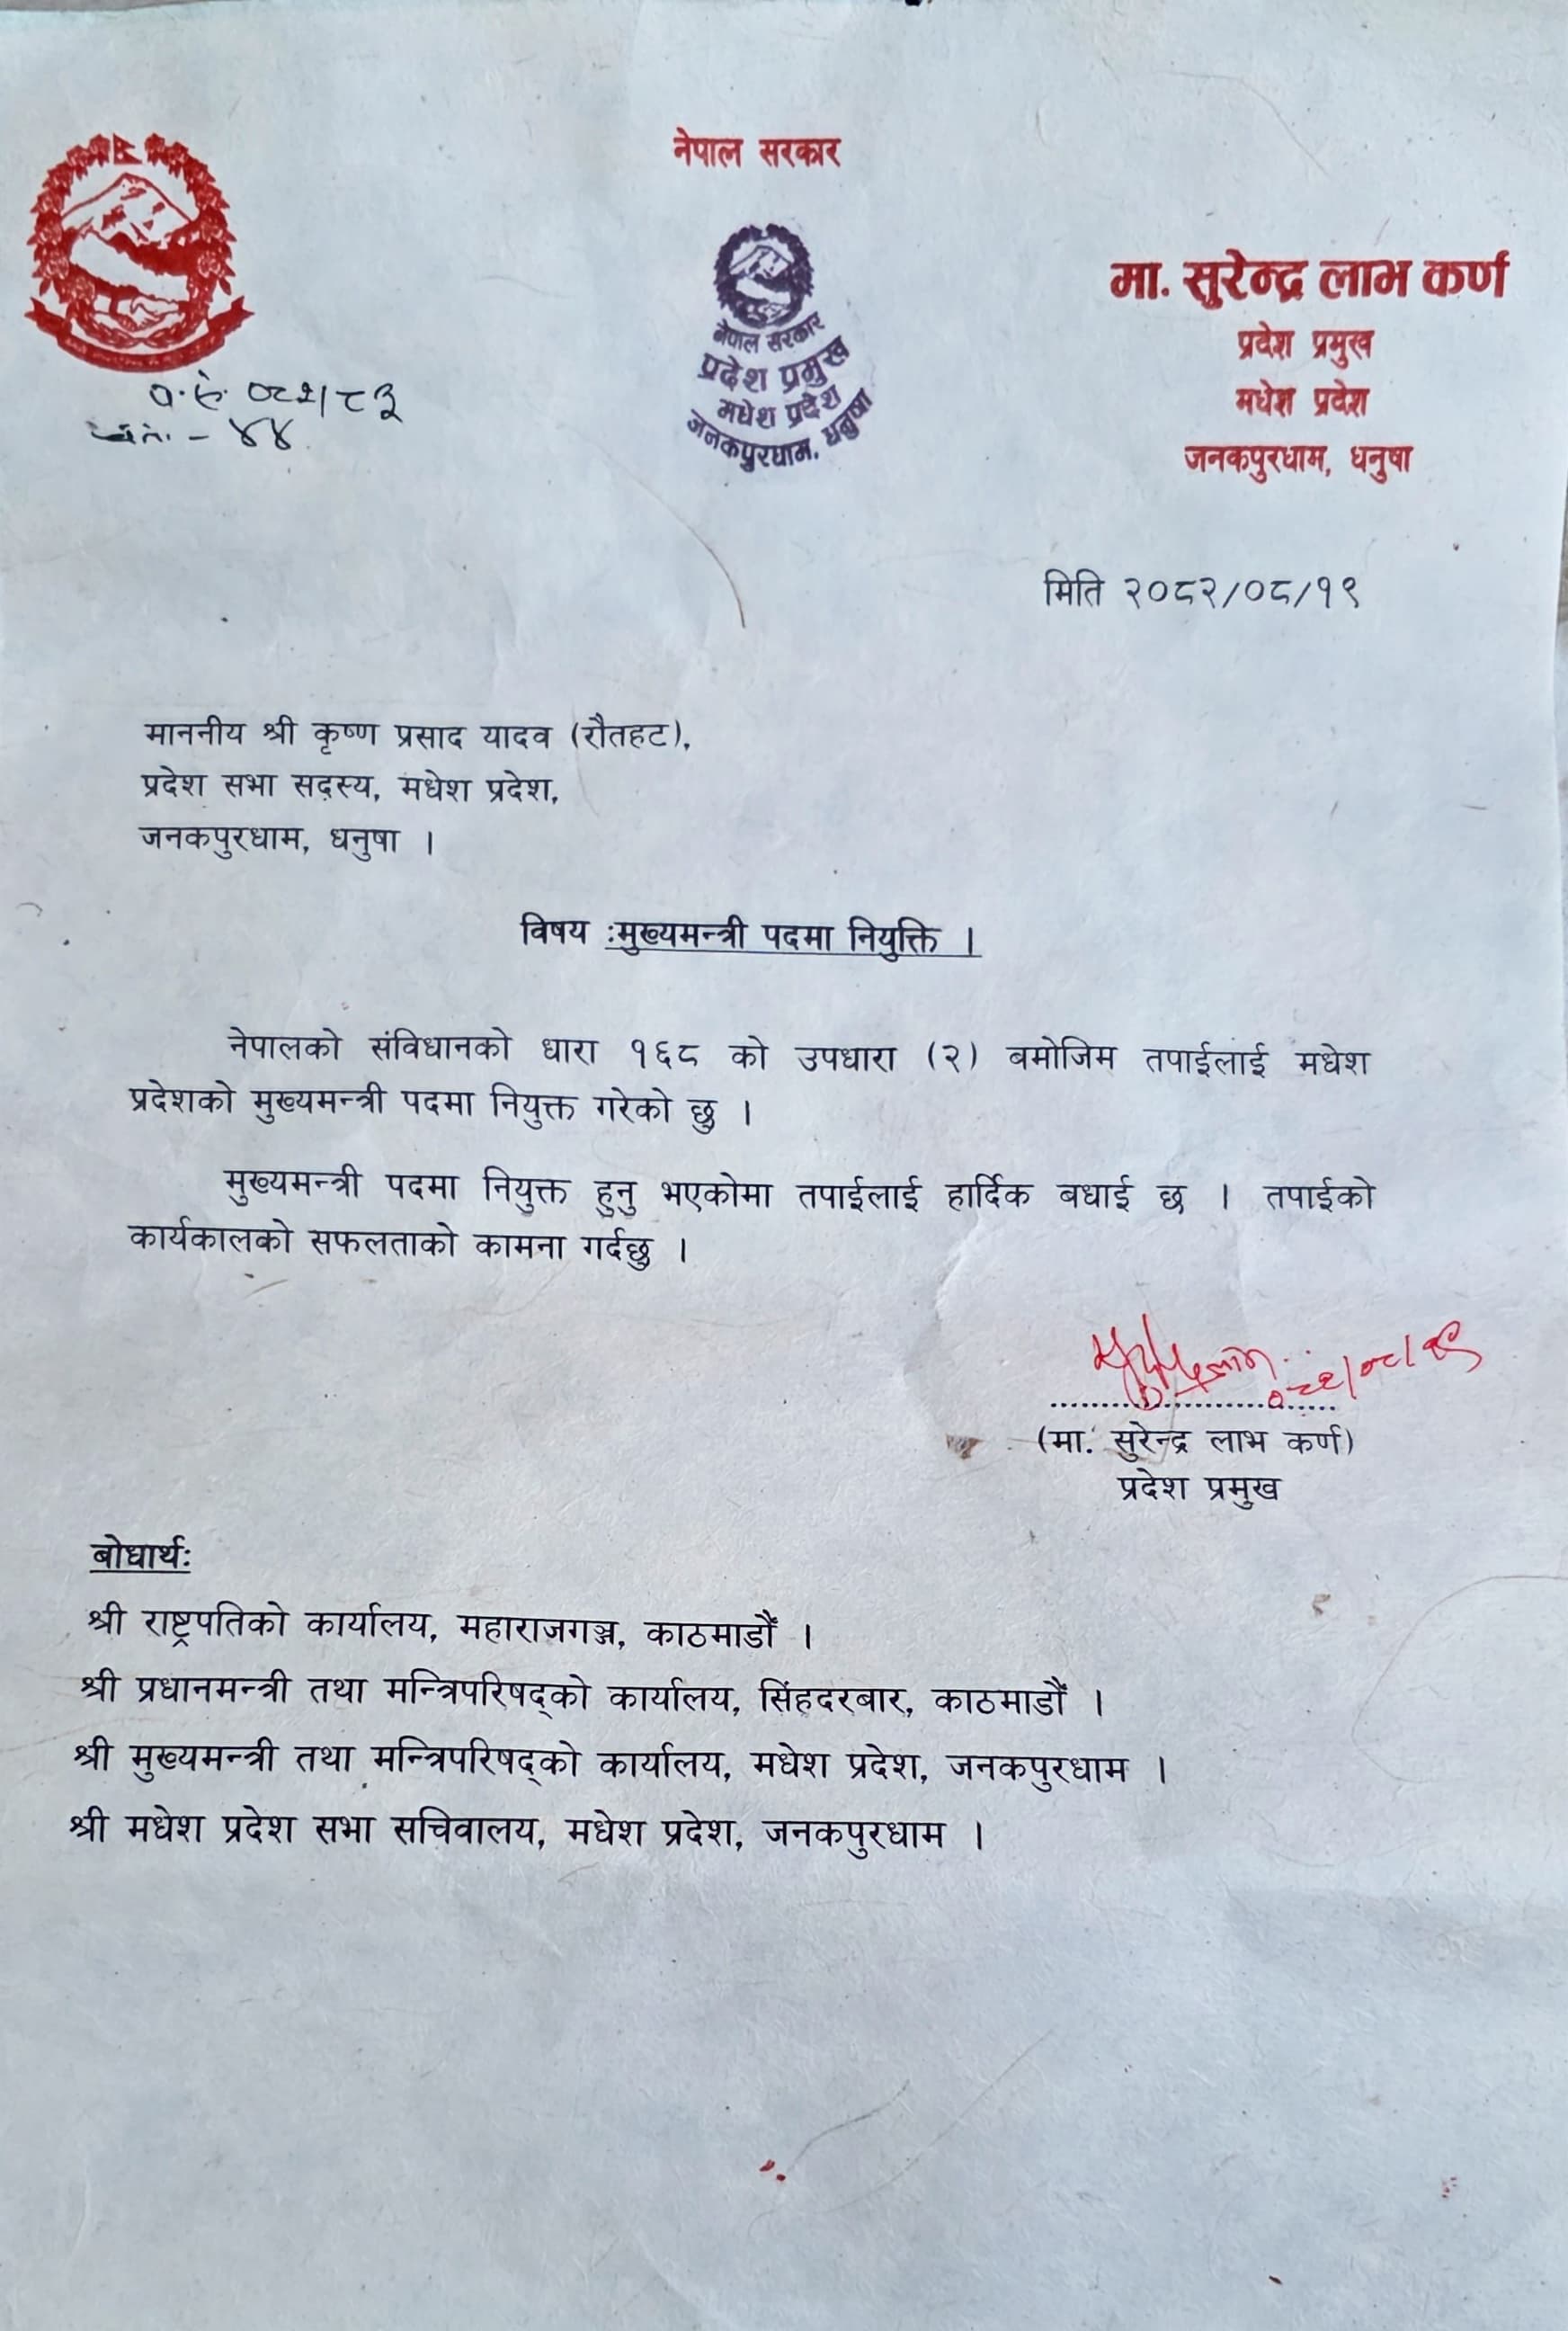 नेपाल सरकार
नेपाल सरकार
प्रदेश प्रमुख
मधेश प्रदेश
जनकपुरधाम, धनुषा
मा. सुरेन्द्र लाभ कर्ण
प्रदेश प्रमुख
मधेश प्रदेश
जनकपुरधाम, धनुषा
प.सं. ०८२/८३
च.नं. - ४४
मिति २०८२/०८/१९
माननीय श्री कृष्ण प्रसाद यादव (रौतहट),
प्रदेश सभा सदस्य, मधेश प्रदेश,
जनकपुरधाम, धनुषा ।
विषय :मुख्यमन्त्री पदमा नियुक्ति ।
नेपालको संविधानको धारा १६८ को उपधारा (२) बमोजिम तपाईलाई मधेश
प्रदेशको मुख्यमन्त्री पदमा नियुक्त गरेको छु ।
मुख्यमन्त्री पदमा नियुक्त हुनु भएकोमा तपाईलाई हार्दिक बधाई छ । तपाईको
कार्यकालको सफलताको कामना गर्दछु ।
०८२/०८/१९
(मा. सुरेन्द्र लाभ कर्ण)
प्रदेश प्रमुख
बोधार्थः
श्री राष्ट्रपतिको कार्यालय, महाराजगञ्ज, काठमाडौं ।
श्री प्रधानमन्त्री तथा मन्त्रिपरिषद्को कार्यालय, सिंहदरबार, काठमाडौं ।
श्री मुख्यमन्त्री तथा मन्त्रिपरिषद्को कार्यालय, मधेश प्रदेश, जनकपुरधाम ।
श्री मधेश प्रदेश सभा सचिवालय, मधेश प्रदेश, जनकपुरधाम ।